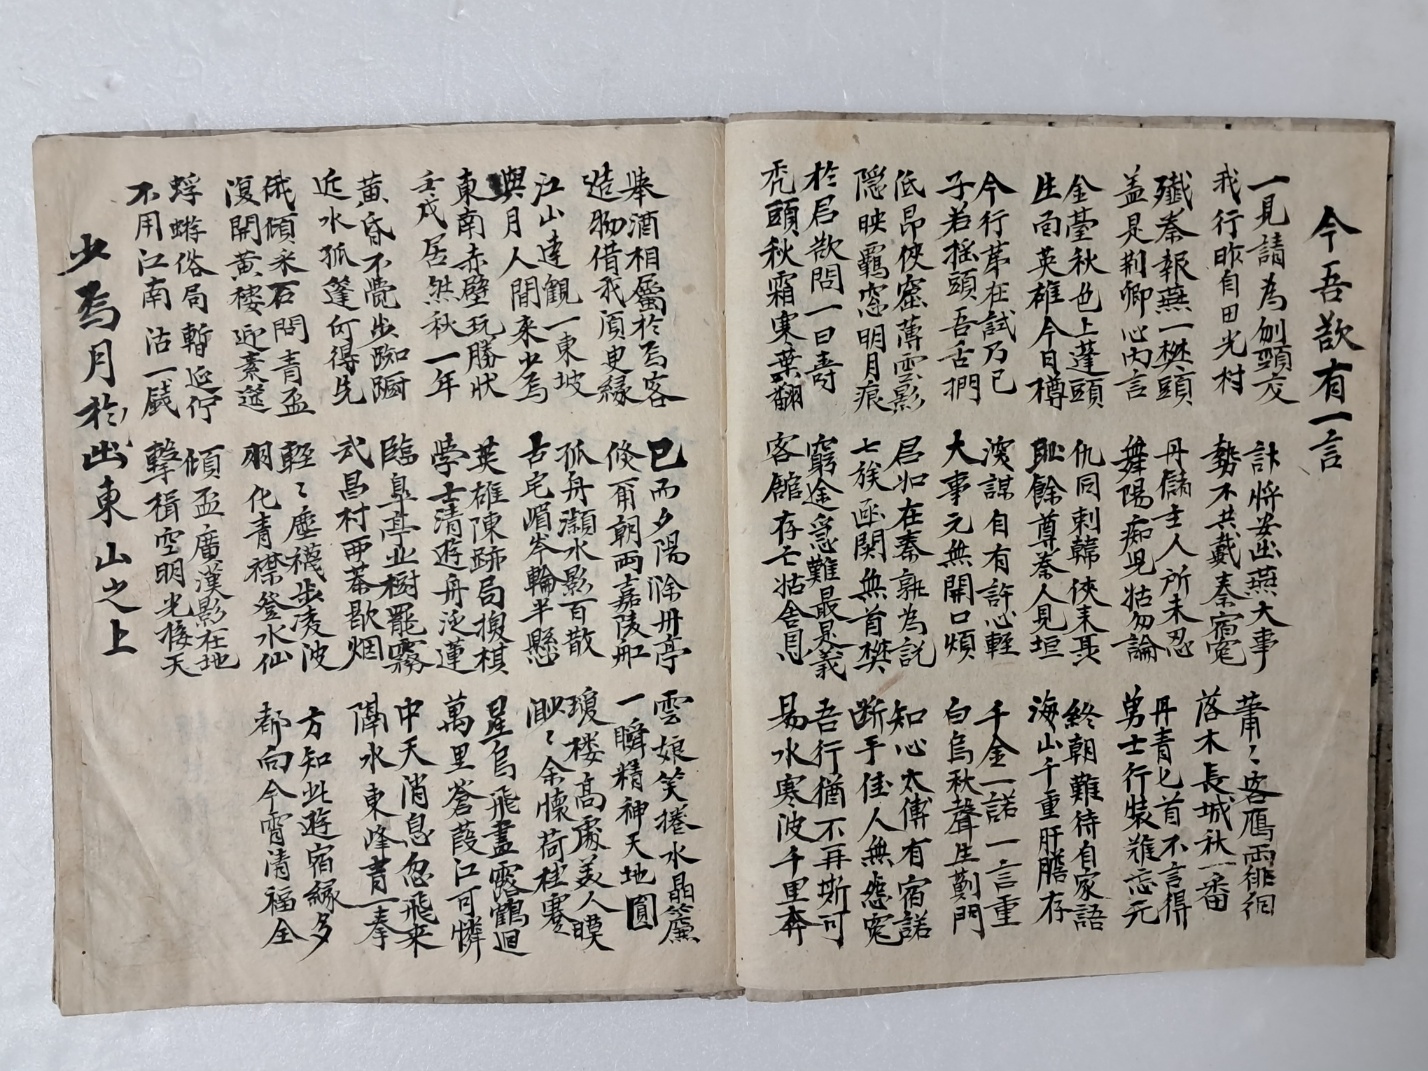 今吾欲有一言
一見請為刎頸友
我行昨自田光村
計將安出燕大事
勢不共戴秦宿冤
蕭〻客鴈雨徘徊
落木長城秋一番
殲秦報燕一樊頭
盖是荊卿心内言
丹儲主人所未忍
舞陽痴児姑勿論
丹青匕首不言得
勇士行装難忘元
金臺秋色上蓬頭
生面英雄今日樽
仇同刺韓俠末
耻餘尊秦人見垣
終朝難待自家語
海山千重肝膽存
今行苐在試乃已
子若摇頭吾舌捫
深謀自有許心輕
大事元無開口煩
千金一諾一言重
白烏秋聲生薊門
低昂俠窟薄雲影
隱映羈窓明月痕
君如在秦孰為說
七族函関無首樊
知心太傅有宿諾
断手佳人無怨冤
於君欲問一曰壽
秃頭秋霜寒葉翻
窮途急難最是義
客館存亡姑舍恩
吾行猶不再斯可
易水寒波千里奔
舉酒相屬於焉客
造物借我須臾緣
已而夕陽滁州亭
倏爾朝雨嘉陵船
雲娘笑捲水晶簾
一瞬精神天地圓
江山達觀一東坡
與月人間來少焉
孤舟灝水影百散
古宅嵋岑輪半懸
瓊楼高處美人暯
渺〻余懷荷桂搴
東南赤壁玩勝狀
壬戌居然秋一年
英雄陳蹟局換棋
學士清遊舟泛蓮
星烏飛盡露鶴廻
萬里蒼葭江可憐
黄昏不覺步踟躕
近水孤篷何得先
臨皐亭坐樹罷霧
武昌村西暮歇烟
中天消息忽飛来
隔水東峰青一拳
俄傾采石問青盃
復開黄樓迎素
輕〻塵襪步凌波
羽化青襟登水仙
方知此遊宿縁多
都向今宵清福全
蜉蝣俗局暫延佇
不用江南沽一錢
傾盃廣漢影在地
擊楫空明光接天
少焉月於出東山之上